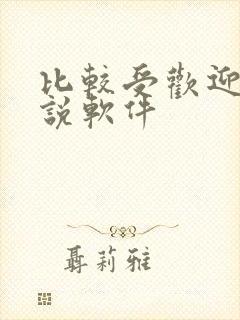 比較受歡迎
說軟件
聶莉雅